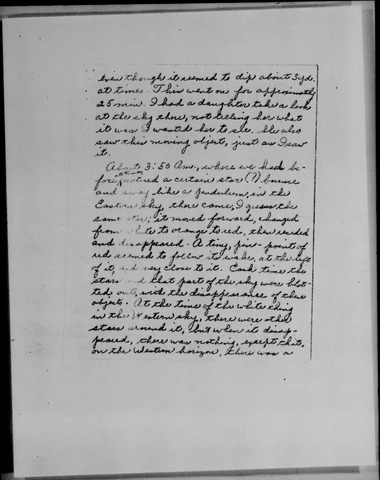 even though it seemed to dip about 3 yds.
at times. This went on for approximately
25 min. I had a daughter take a look
at the sky there, not telling her what
it was I wanted her to see. She also
saw this moving object, just as I saw
it.
About 3:50 Am., where we had be-
fore noticed a certain star (?) bounce
and sway like a pendulum, in the
Eastern sky, there came, I guess the
same star; it moved forward, changed
from white to orange to red, then receded
and disappeared. A tiny, pin-point of
red seemed to follow its wake, at the left
of it, and very close to it. Each time the
stars and that part of the sky were blot-
ted out, with the disappearance of these
objects. At the time of the white thing
in the Western sky, there were other
stars around it, but when it disap-
peared, there was nothing, except that,
on the Western horizon, there was a